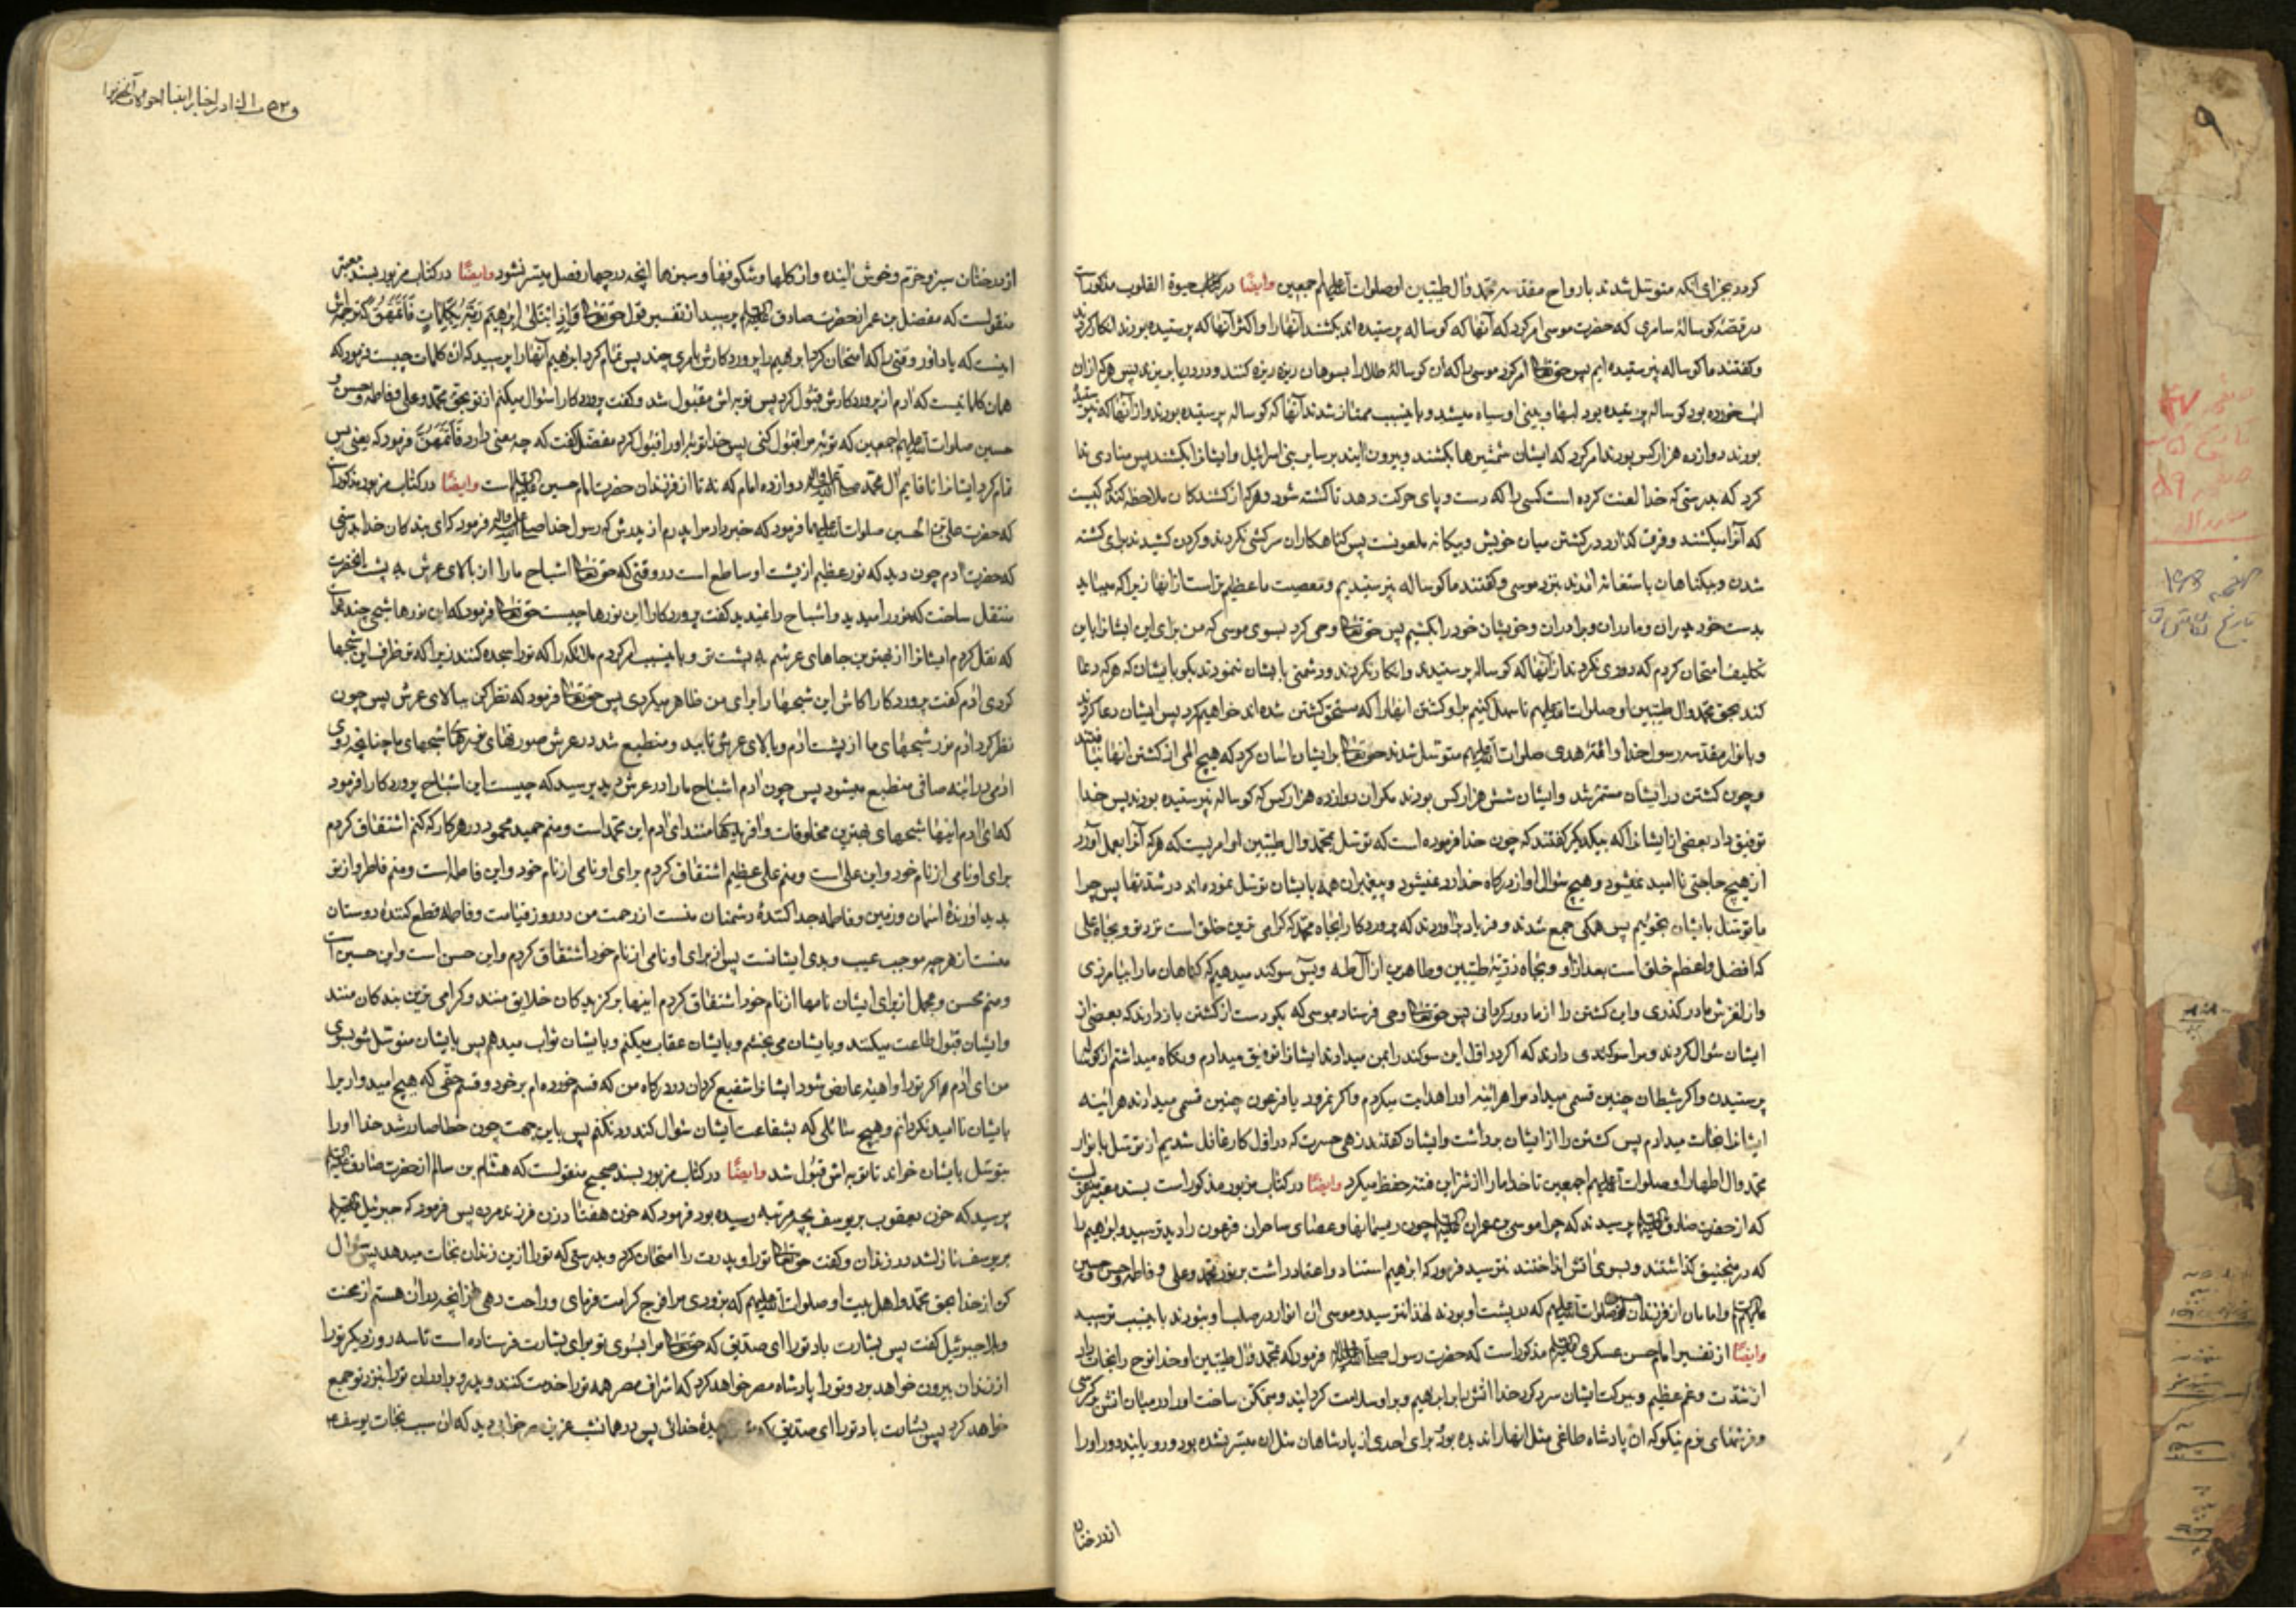 کرد بجزای آنکه متوسل شدند بارواح مقدسه محمد وآل طیبین او صلوات الله علیهم اجمعین وایضًا در کتاب حیوة القلوب مذکور است
در قصّه کوسالهٔ سامری که حضرت موسی امر کرد که آنها که کوساله پرستیده اند بکشند آنها را واکثر آنها که پرستیده بودند انکار کردند
وکفتند ما کوساله نپرستیده ایم پس حق تعالی امر کرد موسی را که آن کوسالهٔ طلا را بسوهان ریزه ریزه کنند ودر دریا بریزند پس هرکه ازان
آب خورده بود کوساله پرستیده بود لبها وبینی او سیاه میشد وباینسبب ممتاز شدند آنها که کوساله پرستیده بودند واز آنها که نپرستیده
بودند دوازده هزار کس بودند امر کرد که ایشان شمشیرها بکشند وبیرون آیند بر سایر بنی اسرائیل وایشانرا بکشند پس منادی ندا
کرد که بدرستی که خدا لعنت کرده است کسی را که دست وپای حرکت دهد تا کشته شود وهرکه از کشندکان ملاحظه کند که کیست
که آنرا میکشند وفرق کذارد در کشتن میان خویش وبیکانه ملعونست پس کناهکاران سرکشی نکردند وکردن کشیدند برای کشته
شدن وبیکناهان باستغاثه آمدند بنزد موسی وکفتند ما کوساله نپرستیدیم ومعصیت ما عظیم تر است از آنها زیرا که میباید
بدست خود پدران ومادران وبرادران وخویشان خود را بکشیم پس حق تعالی وحی کرد بسوی موسی که من برای این ایشانرا باین
تکلیف امتحان کردم که دوری نکردند از آنها که کوساله پرستیدند وانکار نکردند ودشمنی با ایشان ننمودند بکو بایشان که هرکه دعا
کند بحق محمد وآل طیبین او صلوات الله علیهم تا سهل کنیم براو کشتن آنها را که مستحق کشتن شده اند خواهیم کرد پس ایشان دعا کردند
وبانوار مقدسه رسولخدا وائمّهٔ هدی صلوات الله علیهم متوسل شدند حق تعالی برایشان آسان کرد که هیچ المی از کشتن آنها نیافتند
وچون کشتن در ایشان مستمر شد وایشان شش هزار کس بودند مکر آن دوازده هزار کس که کوساله نپرستیده بودند پس خدا
توفیق داد بعضی از ایشانرا که بیکدیکر کفتند که چون خدا فرموده است که توسل بمحمد وآل طیبین او امریست که هرکه آنرا بعمل آورد
از هیچ حاجتی نا امید نمیشود وهیچ سؤال او از درکاه خدا رد نمیشود وپیغمبران همه بایشان توسل نموده اند در شدتها پس چرا
ما توسل بایشان نجوئیم پس همکی جمع شدند وفریاد برآوردند که پروردکارا بجاه محمد که کرامی ترین خلق است نزد تو وبجاه علی
که افضل واعظم خلق است بعد از او وبجاه ذریّهٔ طیبین وطاهرین از آل طه ویٓس سوکند میدهیم که کناهان ما را بیامرزی
واز لغزش ما درکذری واین کشتن را از ما دور کردانی پس حق تعالی وحی فرستاد بموسی که بکو دست از کشتن بازدارند که بعضی از
ایشان سؤال کردند ومرا سوکندی دادند که اکر در اول این سوکند را بمن میدادند ایشانرا توفیق میدادم ونکاه میداشتم از کوساله
پرستیدن واکر شیطان چنین قسمی میداد مرا هرآئینه او را هدایت میکردم واکر نمرود یا فرعون چنین قسمی میدادند هرآئینه
ایشانرا نجات میدادم پس کشتن را از ایشان برداشت وایشان کفتند زهی حسرت که در اول کار غافل شدیم از توسل بانوار
محمد وآل اطهار او صلوات الله علیهم اجمعین تا خدا ما را از شر این فتنه حفظ میکرد وایضًا در کتاب مزبور مذکور است بسند معتبر منقولست
که از حضرت صادق علیه السلام پرسیدند که چرا موسی بن عمران علیه السلام چون ریسمانها وعصاهای ساحران فرعون را دید ترسید وابراهیم را
که در منجنیق کذاشتند وبسوی آتش انداختند نترسید فرمود که ابراهیم استناد واعتماد داشت بر نور محمد وعلی وفاطمه وحسن وحسین
علیهم السلام وامامان از فرزندان صلوات الله علیهم که در پشت او بودند لهذا نترسید وموسی آن انوار در صلب او نبودند باینسبب ترسید
وایضًا از تفسیر امام حسن عسکری علیه السلام مذکور است که حضرت رسول صلی الله علیه وآله فرمود که بمحمد وآل طیبین او خدا نوح را نجات داد
از شدت وغم عظیم وببرکت ایشان سرد کرد خدا آتش را بر ابراهیم وبر او سلامت کردانید ومتمکن ساخت او را در میان آتش بر کرسی
وفرشهای نرم نیکو که آن پادشاه طاغی مثل آنها را ندیده بود وبرای احدی از پادشاهان مثل آن میسّر نشده بود ورویانید در دور او را
از درختان
و
از درختان سبز وخرّم وخوش آینده واز کلها وشکوفها وسبزها آنچه در چهار فصل میسّر نشود وایضًا در کتاب مزبور بسند معتبر
منقولست که مفضل بن عمر از حضرت صادق علیه السلام پرسید از تفسیر قول حق تعالی وَاِذِ ابْتَلٰی اِبْرٰهیمَ رَبُّهُ بِکَلِماتٍ فَاَتَمَّهُنَّ که ترجمه اش
اینست که یاد آور وقتی را که امتحان کرد ابراهیم را پروردکارش بامری چند پس تمام کرد ابراهیم آنها را پرسید که آن کلمات چیست فرمود که
همان کلماتیست که آدم از پروردکارش قبول کرد پس توبه اش مقبول شد وکفت پروردکارا سؤال میکنم از تو بحق محمد وعلی وفاطمه وحسن و
حسین صلوات الله علیهم اجمعین که توبهٔ مرا قبول کنی پس خدا توبهٔ او را قبول کرد مفضل کفت که چه معنی دارد فَاَتَمَّهُنَّ فرمود که یعنی پس
تمام کرد ایشانرا تا قایم آل محمد صلی الله علیه وآله دوازده امام که نه تا از فرزندان حضرت امام حسین علیه السلام است وایضًا در کتاب مزبور مذکور است
که حضرت علی بن الحسین صلوات الله علیهما فرمود که خبر داد مرا پدرم از پدرش که رسول خدا صلی الله علیه وآله فرمود که ای بندکان خدا بدرستی
که حضرت آدم چون دید که نور عظیم از پشت او ساطع است در وقتی که حق تعالی اشباح ما را از بالای عرش به پشت آنحضرت
منتقل ساخت که نور را میدید واشباح را نمیدید کفت پروردکارا این نورها چیست حق تعالی فرمود که این نورها شبحی چند است
که نقل کردم ایشانرا از بهترین جاهای عرشم به پشت تو وباینسبب امر کردم ملائکه را که تو را سجده کنند زیرا که تو ظرف این شبحها
کردی آدم کفت پروردکارا کاش این شبحها را برای من ظاهر میکردی پس حق تعالی فرمود که نظر کن ببالای عرش پس چون
نظر کرد آدم نور شبحهای ما از پشت آدم وبالای عرش تابید ومنطبع شد در عرش صورتهای شبحهای ما چنانچه روی
آدمی در آئینه صافی منطبع میشود پس چون آدم اشباح ما را در عرش دید پرسید که چیست این اشباح پروردکارا فرمود
که ای آدم اینها شبحهای بهترین مخلوقات وآفریدکان منند ای آدم این محمد است ومنم حمید محمود در هر کار که کنم اشتقاق کردم
برای او نامی از نام خود واین علی است ومنم علی عظیم اشتقاق کردم برای او نامی از نام خود واین فاطمه است ومنم فاطر واز نو
پدید آورندهٔ آسمان وزمین وفاطمه جدا کنندهٔ دشمنان منست از رحمت من در روز قیامت وفاطمه قطع کنندهٔ دوستان
منست از هرچه موجب عیب وبدی ایشانست پس از برای او نامی از نام خود اشتقاق کردم واین حسن است واین حسین است
ومنم محسن ومجمل از برای ایشان نامها از نام خود اشتقاق کردم اینها برکزیدکان خلایق منند وکرامی ترین بندکان منند
وایشان قبول طاعت میکنند وبایشان می بخشم وبایشان عقاب میکنم وبایشان ثواب میدهم پس بایشان متوسل شو بسوی
من ای آدم هر کاه تو را داهیهٔ عارض شود ایشانرا شفیع کردان در درکاه من که قسم خورده ام بر خود وقسم حقّی که هیچ امیدوار را
بایشان نا امید نکردانم وهیچ سائلی که بشفاعت ایشان سؤال کند رد نکنم پس باین جهت چون خطا صادر شد خدا را
بتوسل بایشان خواند تا توبه اش قبول شد وایضًا در کتاب مزبور بسند صحیح منقولست که هشام بن سالم از حضرت صادق علیه السلام
پرسید که حزن یعقوب بر یوسف بچه مرتبه رسیده بود فرمود که حزن هفتاد زن فرزند مرده پس فرمود که جبرئیل علیه السلام
بر یوسف نازل شد در زندان وکفت حق تعالی تو را وپدرت را امتحان کرد وبدرستی که تو را ازین زندان نجات میدهد پس سؤال
کن از خدا بحق محمد واهل بیت او صلوات الله علیهم که بزودی مرا فرج کرامت فرمای وراحت دهی از آنچه در آن هستم از محنت
وبلا جبرئیل کفت پس بشارت باد تو را ای صدیق که حق تعالی مرا بسوی تو برای بشارت فرستاده است تا سه روز دیکر تو را
از زندان بیرون خواهد برد وتو را پادشاه مصر خواهد کرد که اشراف مصر همه تو را خدمت کنند وپدر وبرادران تو را بنزد تو جمع
خواهد کرد پس بشارت باد تو را ای صدیق که خدائی پس در همانشب عزیز مصر خوابی دید که آن سبب نجات یوسف